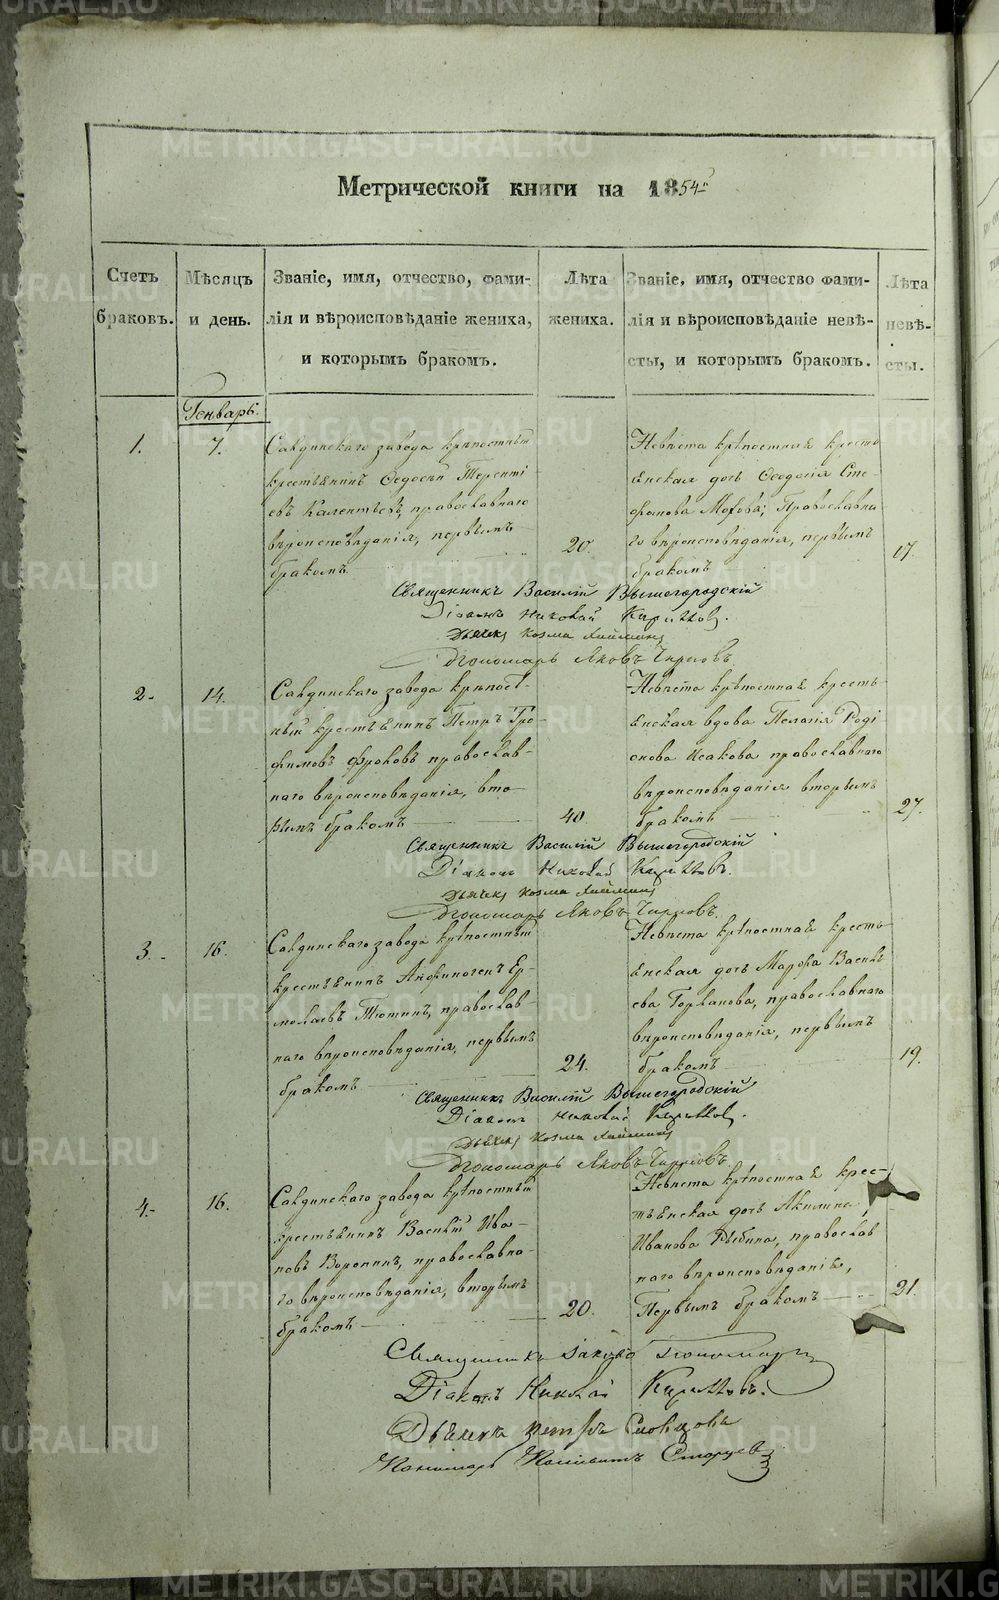 Метрической книги на 1854 г.
Счетъ браковъ.
Мѣсяцъ и день.
Званіе, имя, отчество, фами-
лія и вѣроисповѣданіе жениха,
и которымъ бракомъ.
Лѣта жениха.
Званіе, имя, отчество фами-
лія и вѣроисповѣданіе невѣ-
сты, и которымъ бракомъ.
Лѣта невѣ-
сты.
Генварь.
1.
7.
завода крѣпостный
крестьянинъ Ѳедосей Теренті
евъ православнаго
вѣроисповѣданія, первымъ
бракомъ
20.
Невѣста крѣпостная кресть
янская дочь Ѳеодосія Сте-
фанова Мохова; Православна
го вѣроисповѣданія, первымъ
бракомъ
17.
Священникъ Василій Вышегородскій
Діаконъ Николай
Дьячекъ Козма
Пономарь Яковъ
2.
14.
завода крѣпост-
ный крестьянинъ Петръ Тро-
фимовъ Фроловъ православ-
наго вѣроисповѣданія, вто-
рымъ бракомъ
40.
Невѣста крѣпостная кресть-
янская вдова Пелагія Роді
онова Исакова православнаго
вѣроисповѣданія вторымъ
бракомъ
27.
Священникъ Василій Вышегородскій
Діаконъ Николай
Дьячекъ Козма
Пономарь Яковъ
3.
16.
завода крѣпостный
крестьянинъ Анфиногенъ Ер-
молаевъ Тютинъ, православ-
наго вѣроисповѣданія, первымъ
бракомъ
24.
Невѣста крѣпостная кресть
янская дочь Марфа Василь
ева Горланова, православнаго
вѣроисповѣданія, первымъ
бракомъ
19.
Священникъ Василій Вышегородскій
Діаконъ Николай
Дьячекъ Козма
Пономарь Яковъ
4.
16.
завода крѣпостный
крестьянинъ Василій Ива-
новъ Воронинъ, православна-
го вѣроисповѣданія, вторымъ
бракомъ
20.
Невѣста крѣпостная крес-
тьянская дочь Акилина
Иванова Рыбина, православ
наго вѣроисповѣданія,
Первымъ бракомъ
21.
Священникъ Іаковъ
Діаконъ Николай
Дьячекъ Петръ Словцовъ
Пономарь
METRIKI.GASO-URAL.RU